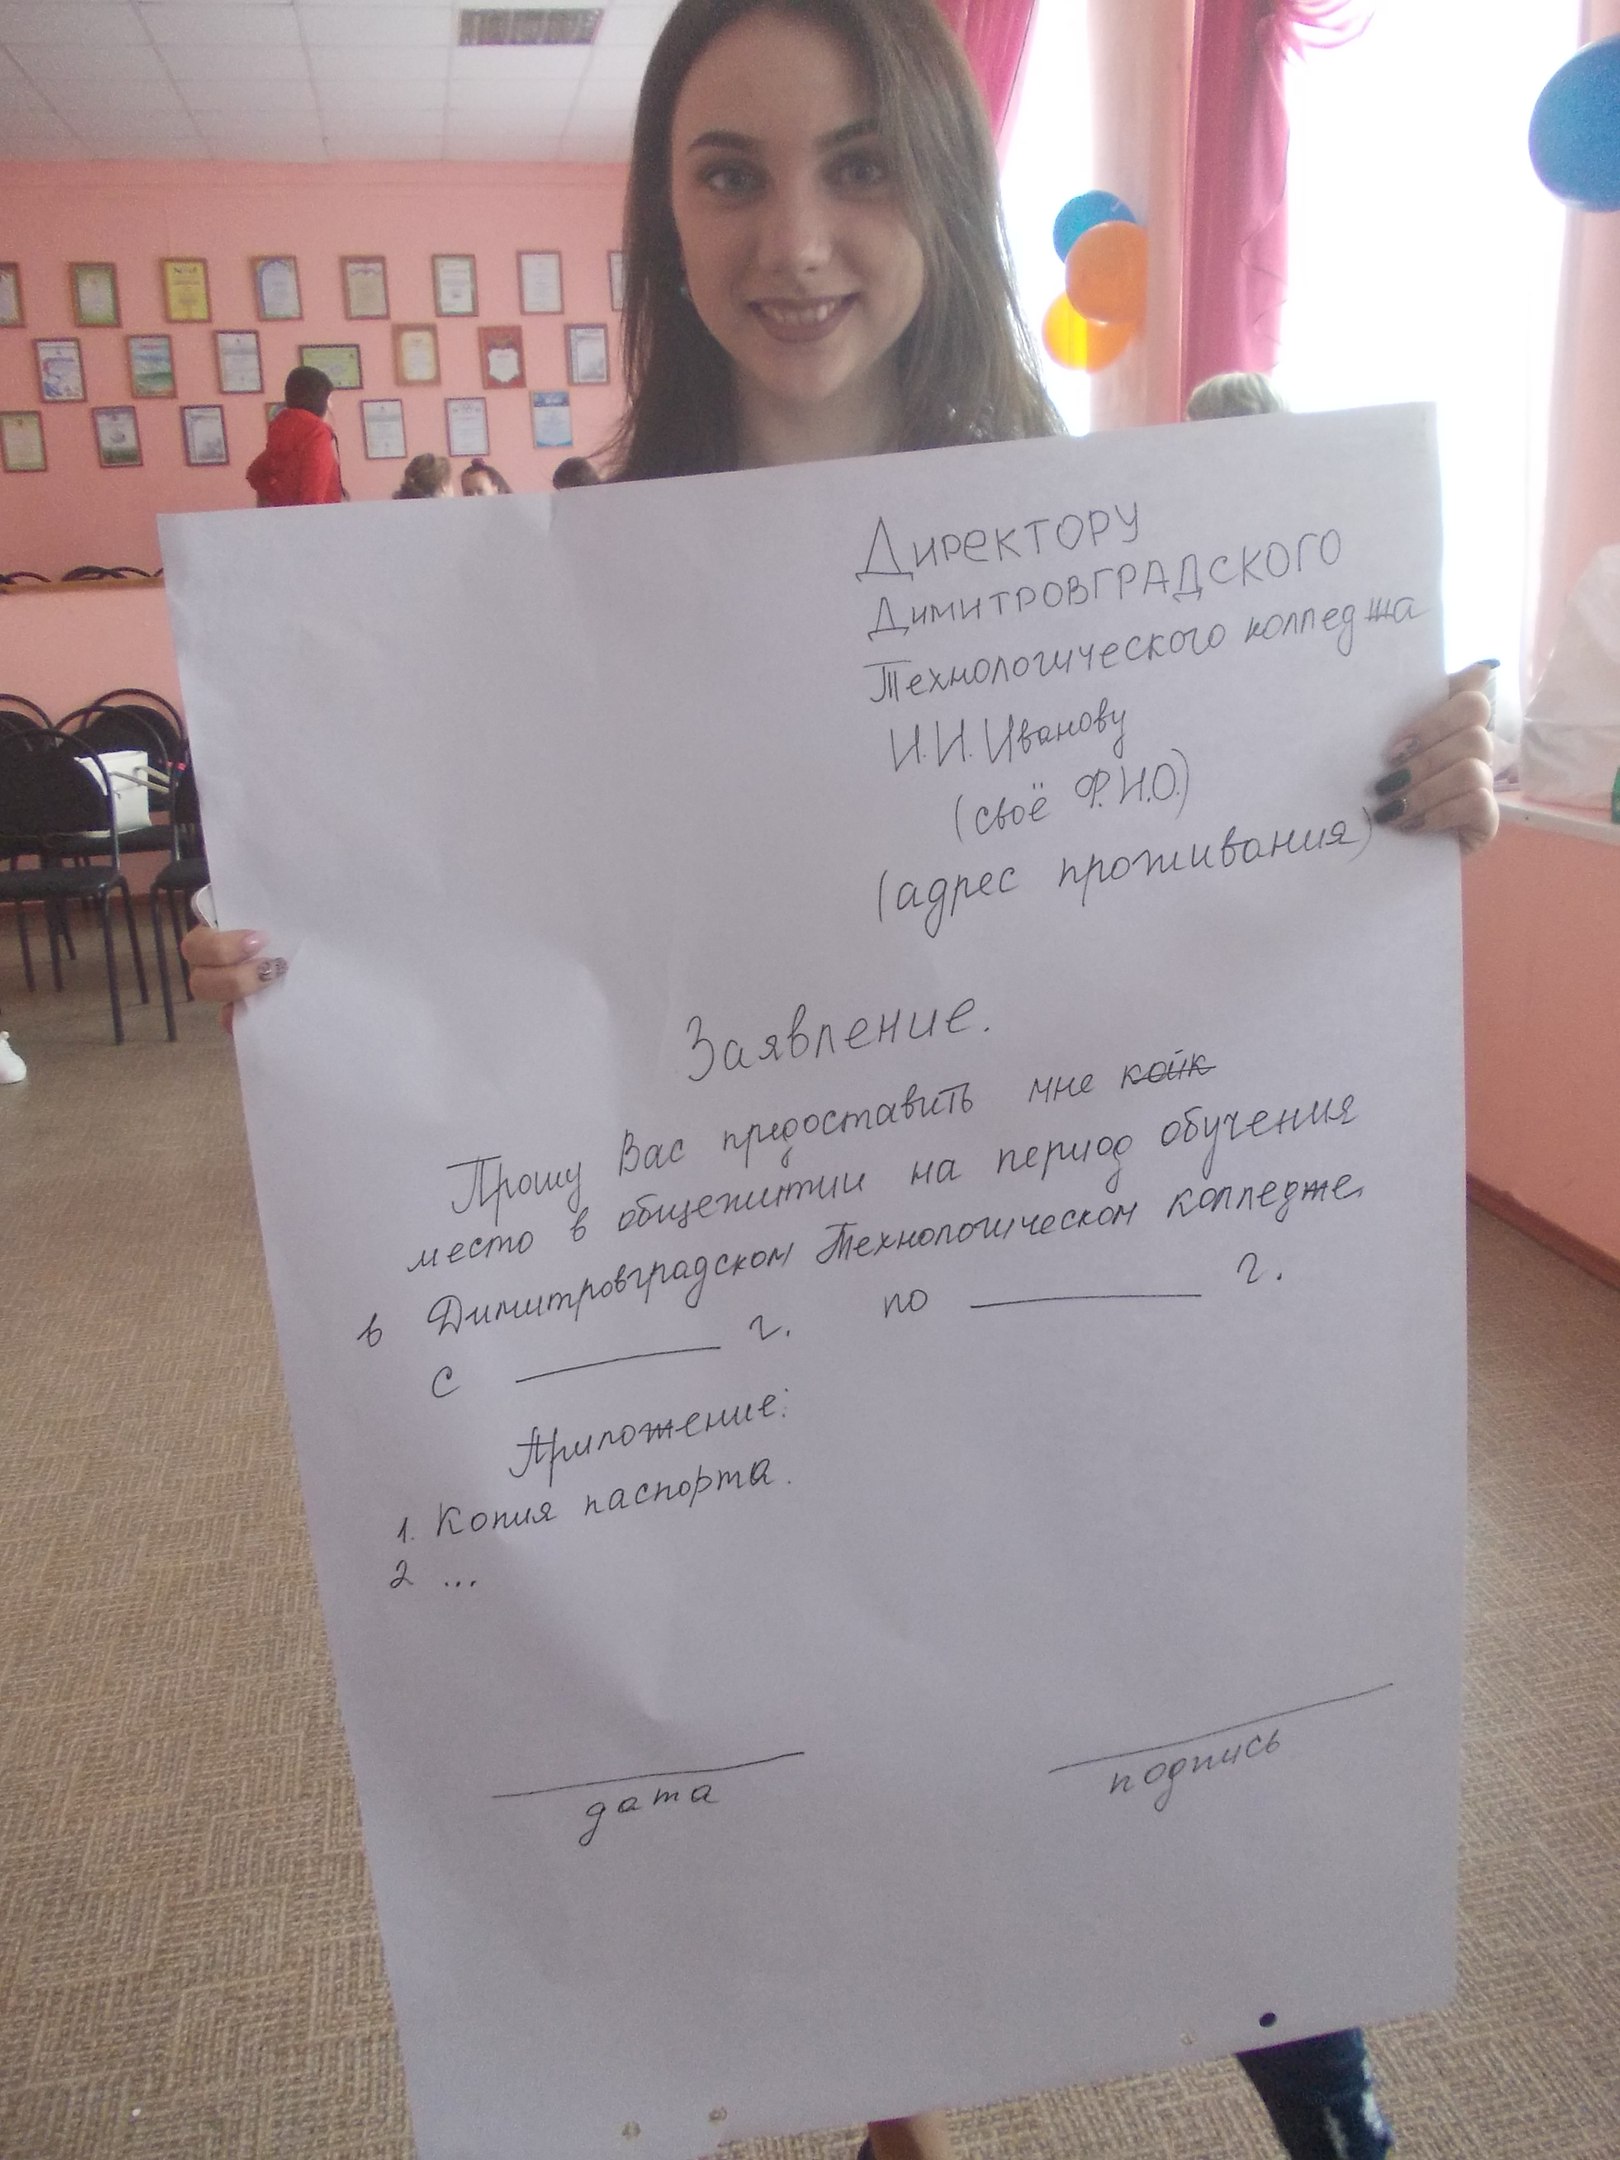 Директору
Димитровградского
Технологического колледжа
И.И. Иванову
(своё Ф.И.О.)
(адрес проживания)
Заявление.
Прошу Вас предоставить мне койк
место в общежитии на период обучения
в Димитровградском Технологическом колледже
с ________ г. по ________ г.
Приложение:
1. Копия паспорта.
2 ...
дата подпись